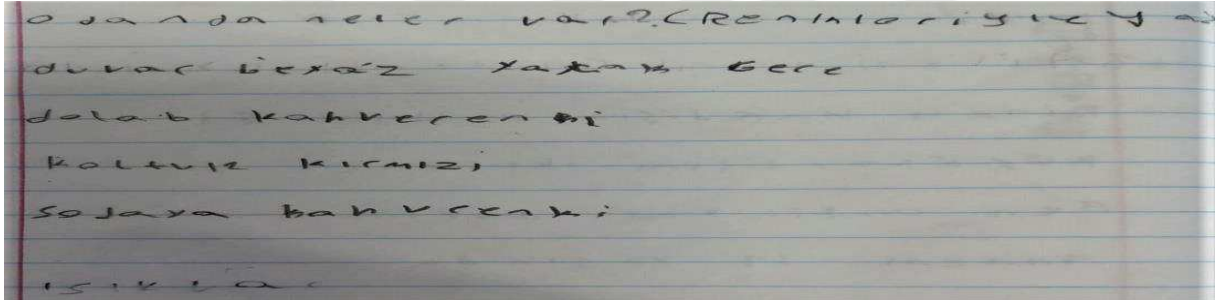 odanda neler var? (Renkleriyle y
duvar beyaz yatak
dolab kahverenki
koltuk kırmızı
kahvrenki